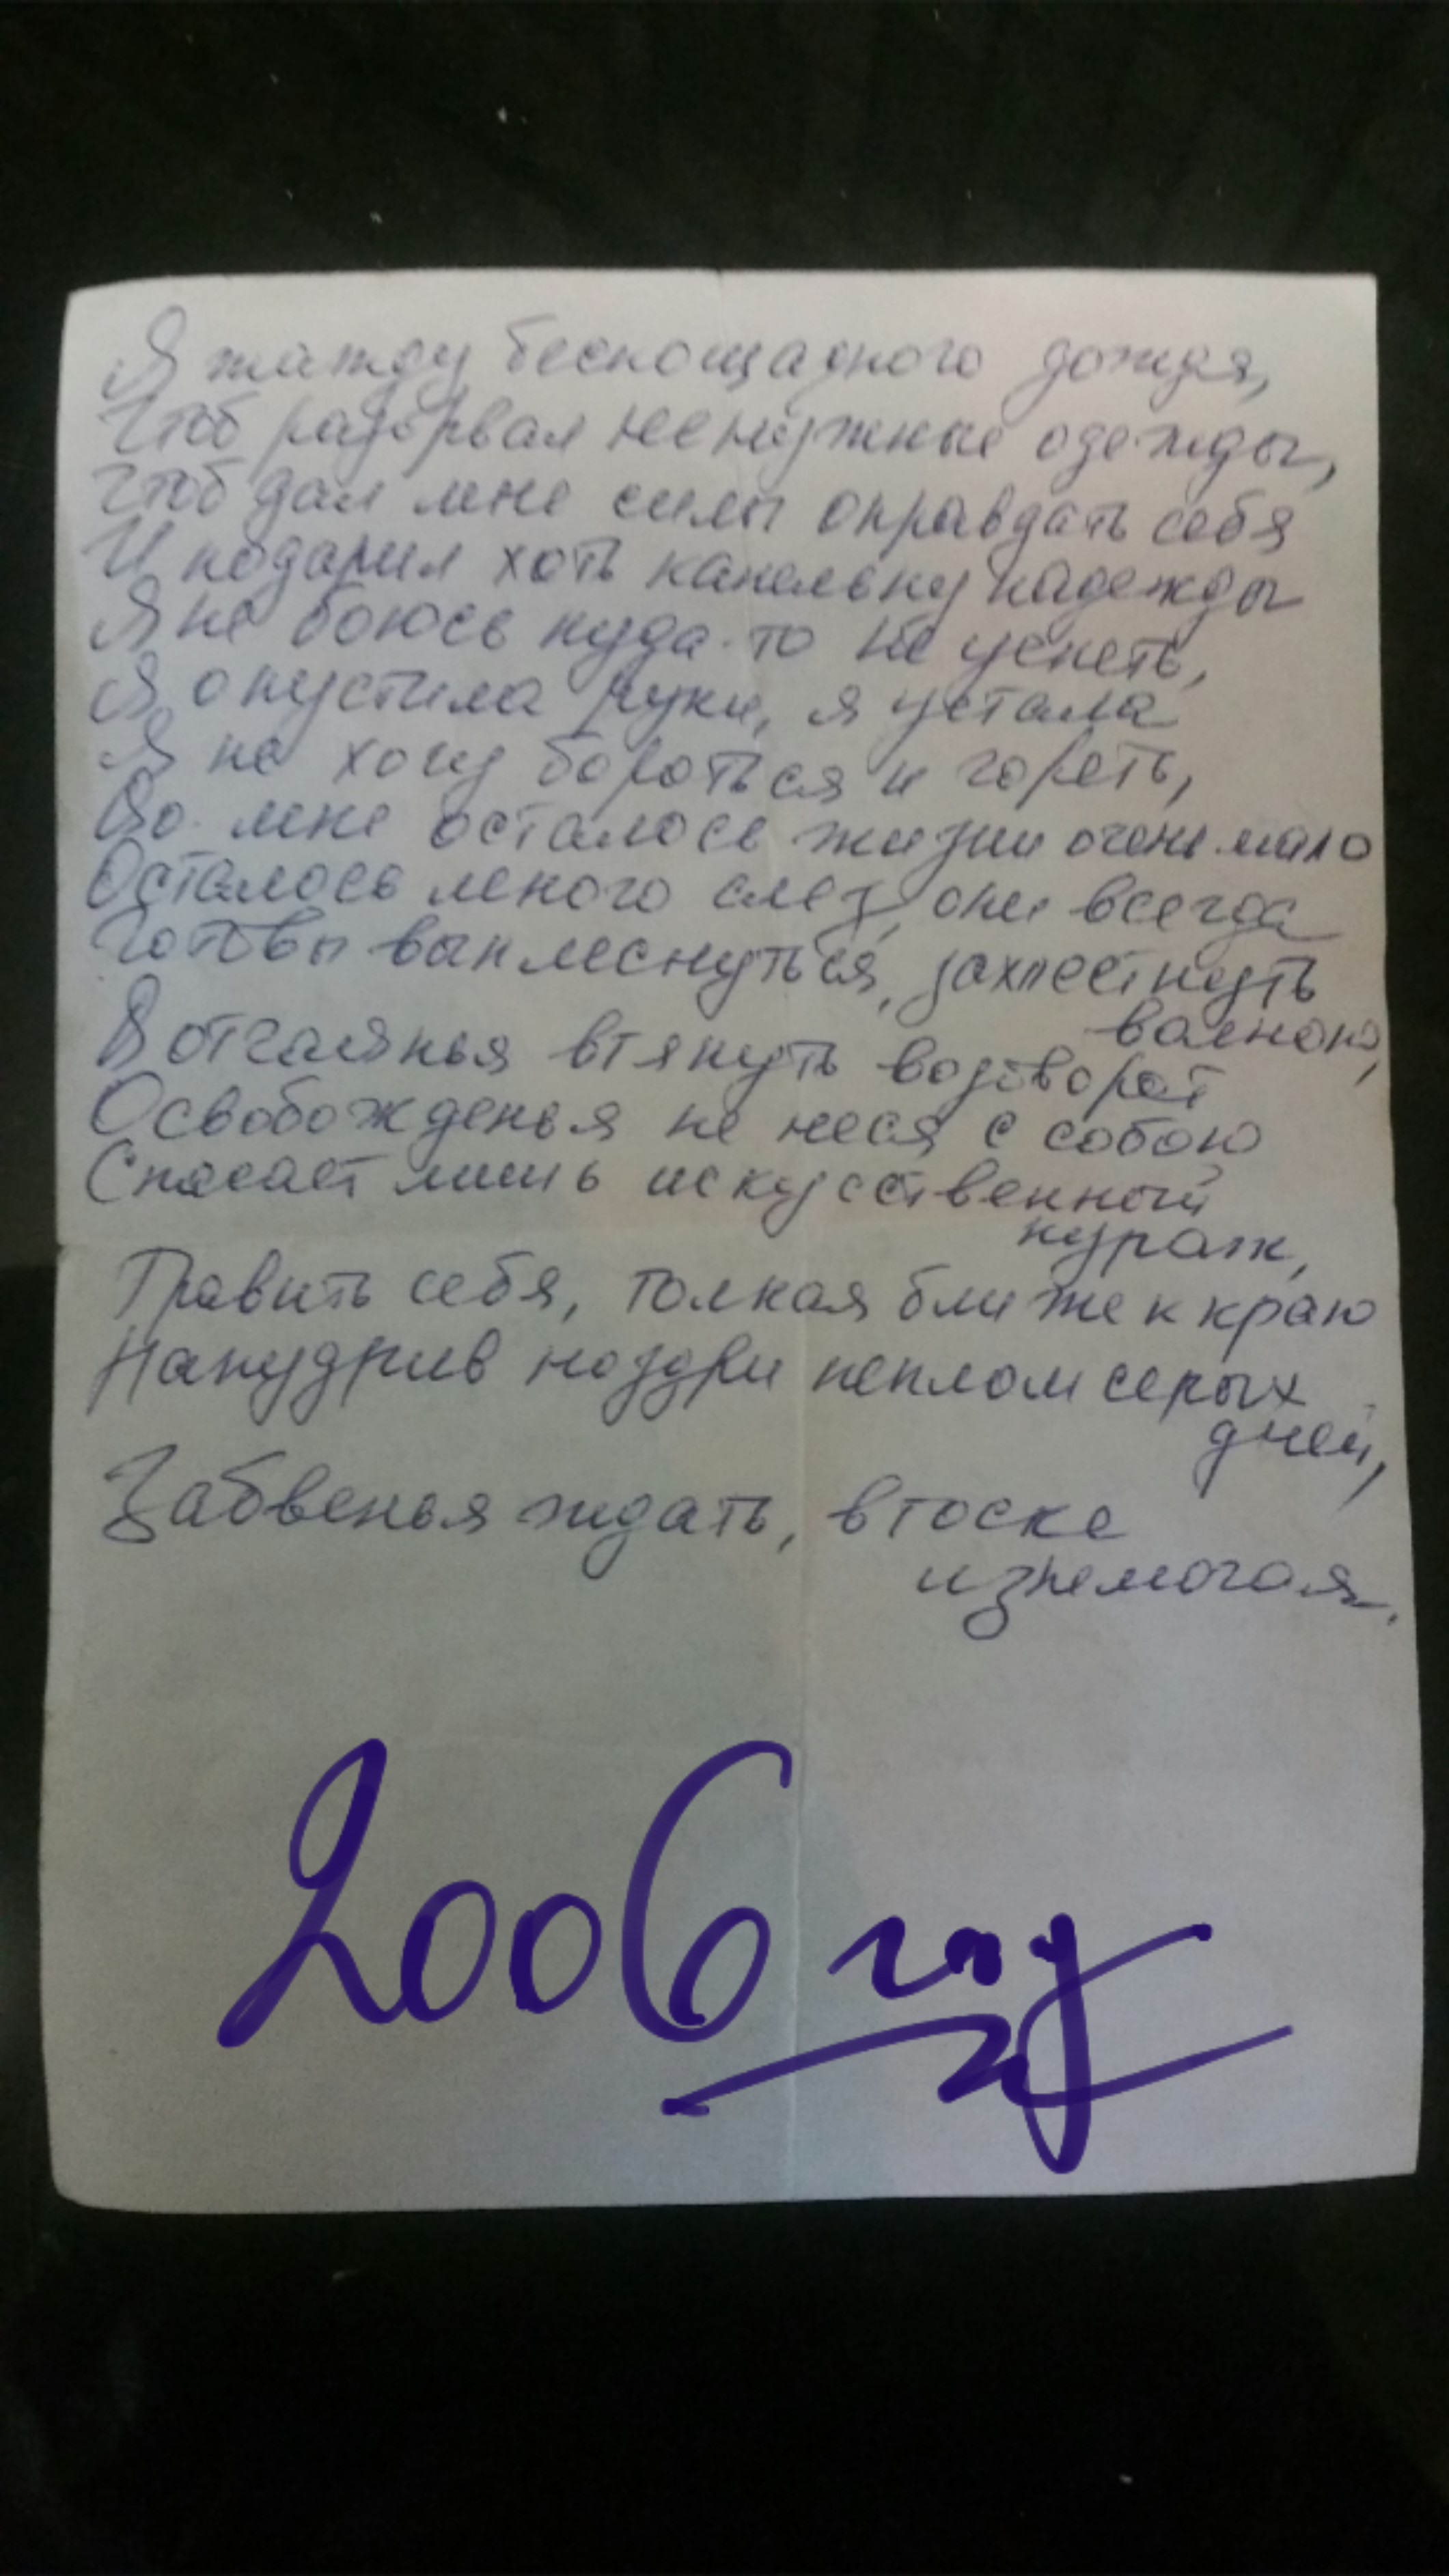 Я жажду беспощадного дождя,
Чтоб разорвал ненужные одежды,
Чтоб дал мне силы оправдать себя
И подарил хоть капельку надежды
Я не боюсь куда-то не успеть,
Я опустила руки, я устала
Я не хочу бороться и гореть,
Во мне осталось жизни очень мало
Осталось много слез, они всегда
Готовы выплеснуться, захлестнуть
волною,
В отчаянья втянуть водоворот
Освобожденья не неся с собою
Спасает лишь искусственный
кураж,
Травить себя, толкая ближе к краю
Напудрив ноздри пеплом серых
дней,
Забвенья ждать, в тоске
изнемогая.
2006 год